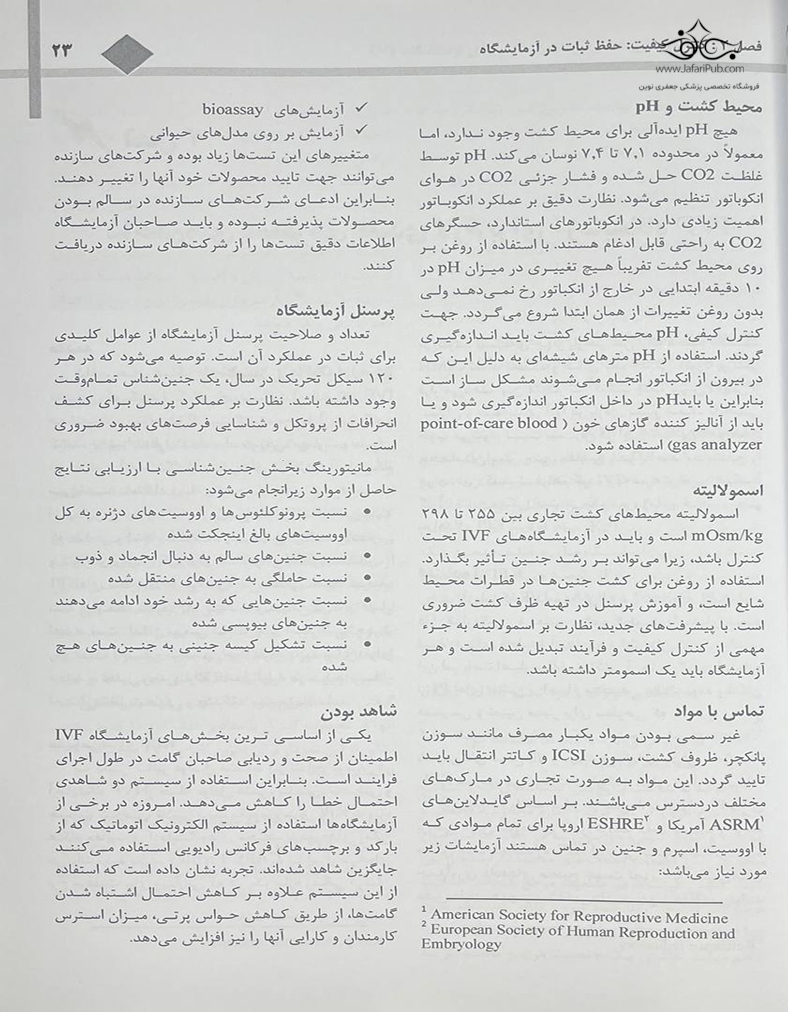 فصل ۲: کنترل کیفیت: حفظ ثبات در آزمایشگاه
۲۳
www.JafariPub.com
فروشگاه تخصصی پزشکی جعفری نوین
محیط کشت و pH
هیچ pH ایده‌آلی برای محیط کشت وجود ندارد، اما
معمولاً در محدوده ۷,۱ تا ۷,۴ نوسان می‌کند. pH توسط
غلظت CO2 حل شده و فشار جزئی CO2 در هوای
انکوباتور تنظیم می‌شود. نظارت دقیق بر عملکرد انکوباتور
اهمیت زیادی دارد. در انکوباتورهای استاندارد، حسگرهای
CO2 به راحتی قابل ادغام هستند. با استفاده از روغن بر
روی محیط کشت تقریباً هیچ تغییری در میزان pH در
۱۰ دقیقه ابتدایی در خارج از انکباتور رخ نمی‌دهد ولی
بدون روغن تغییرات از همان ابتدا شروع می‌گردد. جهت
کنترل کیفی، pH محیط‌های کشت باید اندازه‌گیری
گردند. استفاده از pH مترهای شیشه‌ای به دلیل این که
در بیرون از انکباتور انجام می‌شوند مشکل ساز است
بنابراین یا بایدpH در داخل انکباتور اندازه‌گیری شود و یا
باید از آنالیز کننده گازهای خون ( point-of-care blood
gas analyzer) استفاده شود.
اسمولالیته
اسمولالیته محیط‌های کشت تجاری بین ۲۵۵ تا ۲۹۸
mOsm/kg است و باید در آزمایشگاه‌های IVF تحت
کنترل باشد، زیرا می‌تواند بر رشد جنین تأثیر بگذارد.
استفاده از روغن برای کشت جنین‌ها در قطرات محیط
شایع است، و آموزش پرسنل در تهیه ظرف کشت ضروری
است. با پیشرفت‌های جدید، نظارت بر اسمولالیته به جزء
مهمی از کنترل کیفیت و فرآیند تبدیل شده است و هر
آزمایشگاه باید یک اسمومتر داشته باشد.
تماس با مواد
غیر سمی بودن مواد یکبار مصرف مانند سوزن
پانکچر، ظروف کشت، سوزن ICSI و کاتتر انتقال باید
تایید گردد. این مواد به صورت تجاری در مارک‌های
مختلف دردسترس می‌باشند. بر اساس گایدلاین‌های
ASRM¹ آمریکا و ESHRE² اروپا برای تمام موادی که
با اووسیت، اسپرم و جنین در تماس هستند آزمایشات زیر
مورد نیاز می‌باشد:
¹ American Society for Reproductive Medicine
² European Society of Human Reproduction and
Embryology
✓ آزمایش‌های bioassay
✓ آزمایش بر روی مدل‌های حیوانی
متغییرهای این تست‌ها زیاد بوده و شرکت‌های سازنده
می‌توانند جهت تایید محصولات خود آنها را تغییر دهند.
بنابراین ادعای شرکت‌های سازنده در سالم بودن
محصولات پذیرفته نبوده و باید صاحبان آزمایشگاه
اطلاعات دقیق تست‌ها را از شرکت‌های سازنده دریافت
کنند.
پرسنل آزمایشگاه
تعداد و صلاحیت پرسنل آزمایشگاه از عوامل کلیدی
برای ثبات در عملکرد آن است. توصیه می‌شود که در هر
۱۲۰ سیکل تحریک در سال، یک جنین‌شناس تمام‌وقت
وجود داشته باشد. نظارت بر عملکرد پرسنل برای کشف
انحرافات از پروتکل و شناسایی فرصت‌های بهبود ضروری
است.
مانیتورینگ بخش جنین‌شناسی با ارزیابی نتایج
حاصل از موارد زیرانجام می‌شود:
• نسبت پرونوکلئوس‌ها و اووسیت‌های دژنره به کل
اووسیت‌های بالغ اینجکت شده
• نسبت جنین‌های سالم به دنبال انجماد و ذوب
• نسبت حاملگی به جنین‌های منتقل شده
• نسبت جنین‌هایی که به رشد خود ادامه می‌دهند
به جنین‌های بیوپسی شده
• نسبت تشکیل کیسه جنینی به جنین‌های هچ
شده
شاهد بودن
یکی از اساسی ترین بخش‌های آزمایشگاه IVF
اطمینان از صحت و ردیابی صاحبان گامت در طول اجرای
فرایند است. بنابراین استفاده از سیستم دو شاهدی
احتمال خطا را کاهش می‌دهد. امروزه در برخی از
آزمایشگاه‌ها استفاده از سیستم الکترونیک اتوماتیک که از
بارکد و برچسب‌های فرکانس رادیویی استفاده می‌کنند
جایگزین شاهد شده‌اند. تجربه نشان داده است که استفاده
از این سیستم علاوه بر کاهش احتمال اشتباه شدن
گامت‌ها، از طریق کاهش حواس پرتی، میزان استرس
کارمندان و کارایی آنها را نیز افزایش می‌دهد.